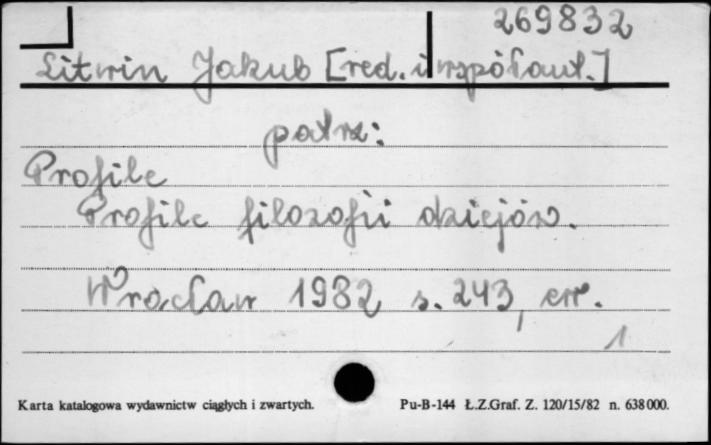 269832
Litwin Jakub [red. i współaut.]
patrz:
Profile
Profile filozofii dziejów.
Wrocław 1982 s. 243, err.
1
Karta katalogowa wydawnictw ciągłych i zwartych. Pu-B-144 Ł.Z.Graf. Z. 120/15/82 n. 638000.